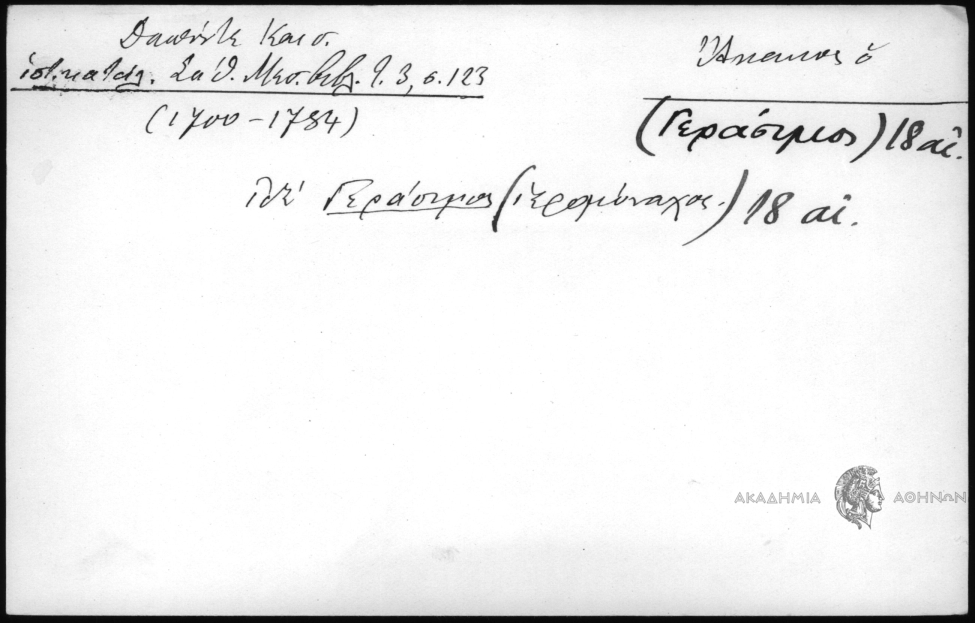 Δαπόντε Καισ.
ἱστ. κατάλ. Σάθ. Μεσ. βιβλ. τ. 3, σ. 123
(1700-1784)
Ἄκακιος ὁ
(Γεράσιμος) 18 αἰ.
ἰδέ Γεράσιμος (ἱερομόναχος.) 18 αἰ.
ΑΚΑΔΗΜΙΑ ΑΘΗΝΩΝ